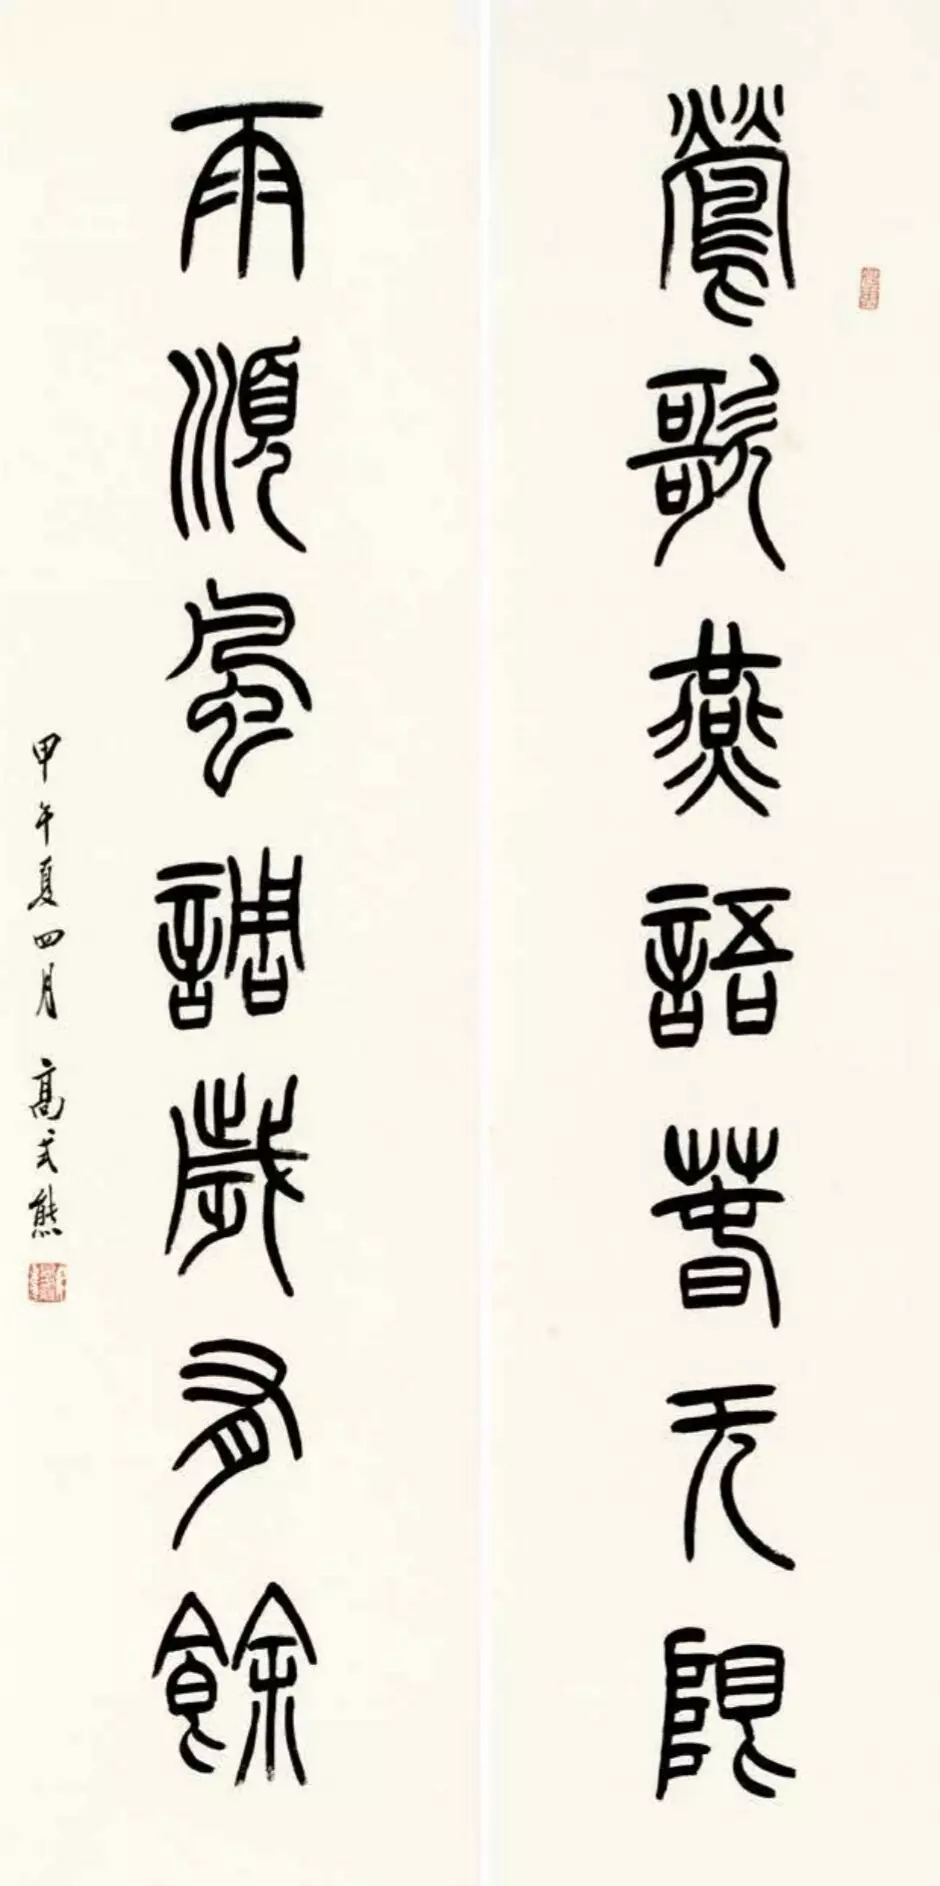 鶯歌燕語春无限
雨順風調歲有餘
甲午夏四月 高式熊